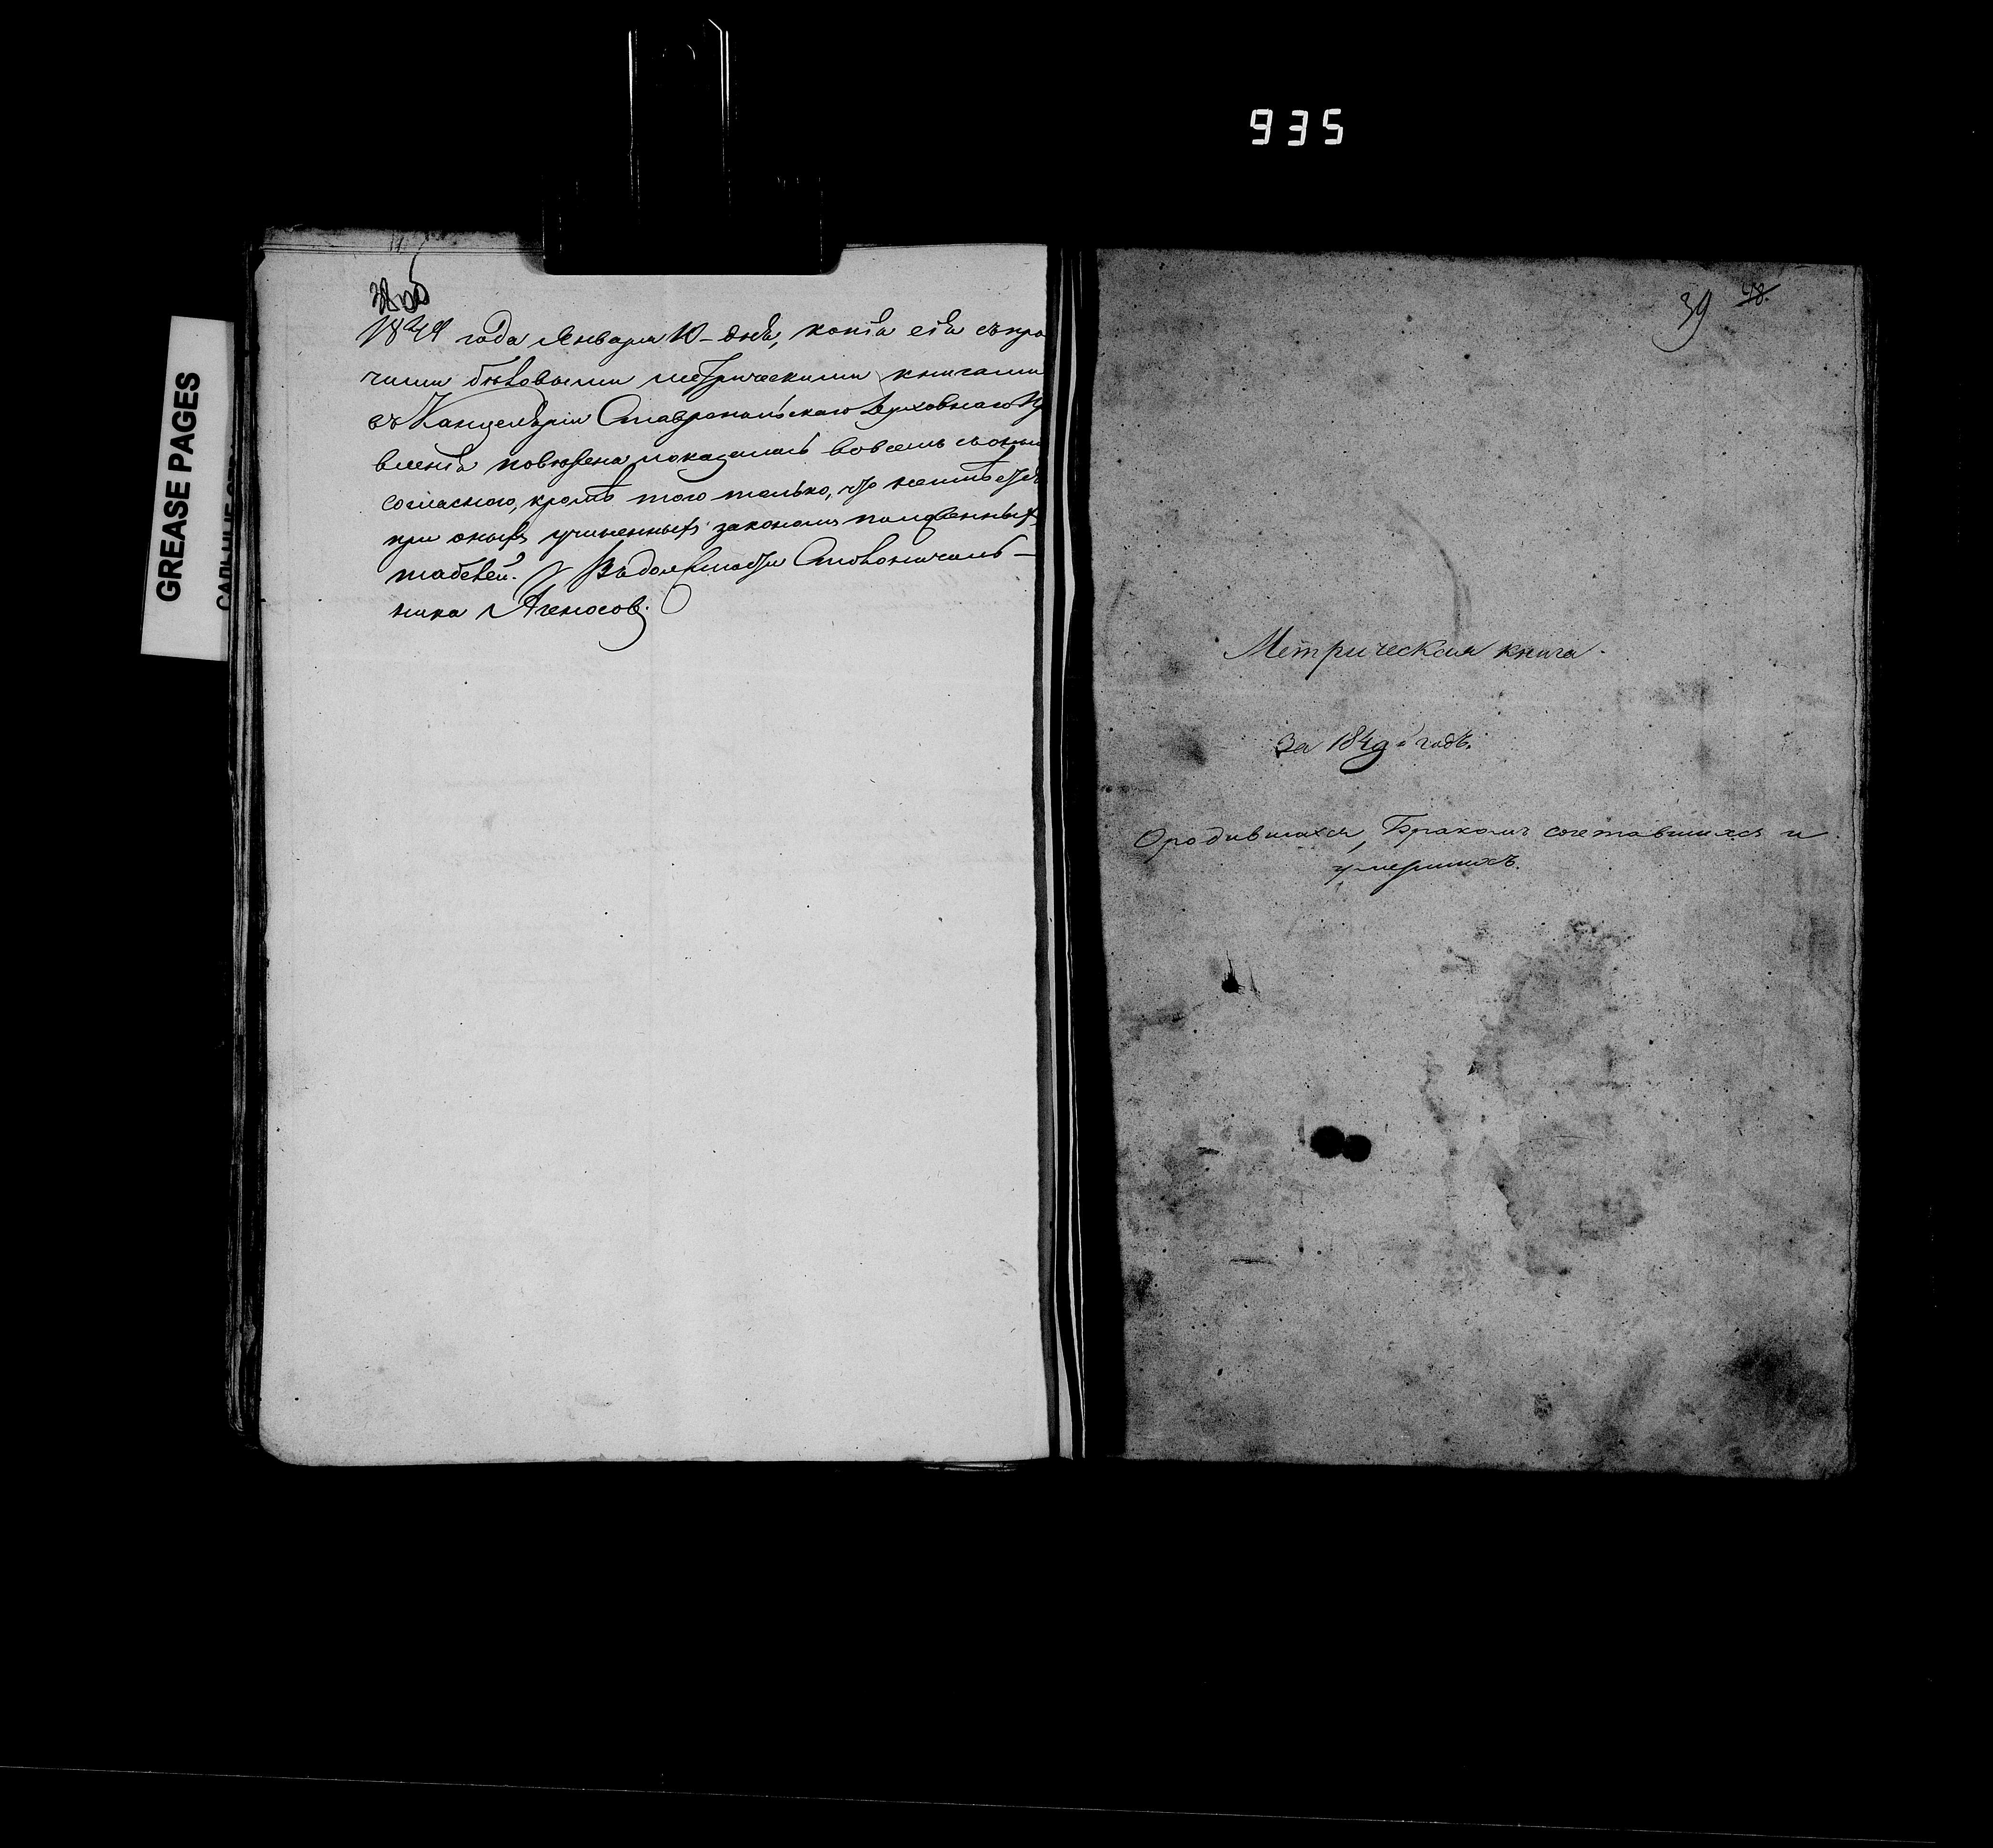 935
GREASE PAGES
1849 года Января 10 дня, копiя сiя съ про
чими бѣловыми метрическими книгами
въ Канцелярiи Ставропольскаго Духовнаго Пра
вленiя повѣрена показалась вовсемъ съ оными
согласною, кромѣ того только, что
при оныхъ учиненныхъ закономъ положенныхъ
табелей. Въ должности Столоначаль-
ника
39 48.
Метрическая книга.
За 1849й годъ.
О родившихся, Бракомъ сочетавшихся и
умершихъ.